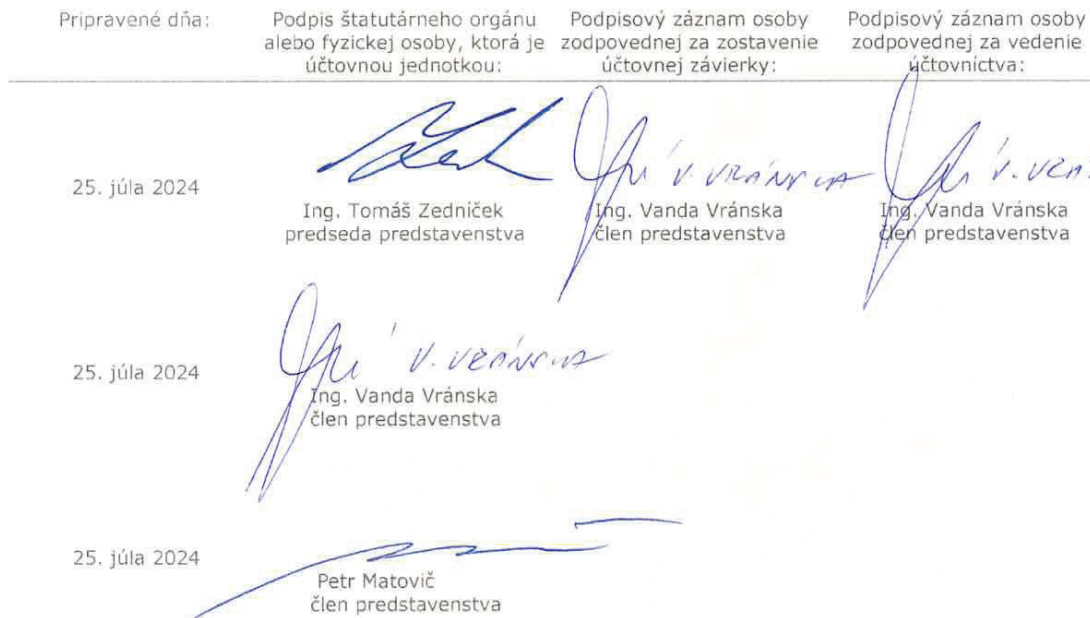 Pripravené dňa:
Podpis štatutárneho orgánu
alebo fyzickej osoby, ktorá je
účtovnou jednotkou:
Podpisový záznam osoby
zodpovednej za zostavenie
účtovnej závierky:
Podpisový záznam osoby
zodpovednej za vedenie
účtovníctva:
25. júla 2024
Ing. Tomáš Zedníček
predseda predstavenstva
V. VRÁNSKA
Ing. Vanda Vránska
člen predstavenstva
Ing. Vanda Vránska
člen predstavenstva
25. júla 2024
V. VRÁNSKA
Ing. Vanda Vránska
člen predstavenstva
25. júla 2024
Petr Matovič
člen predstavenstva